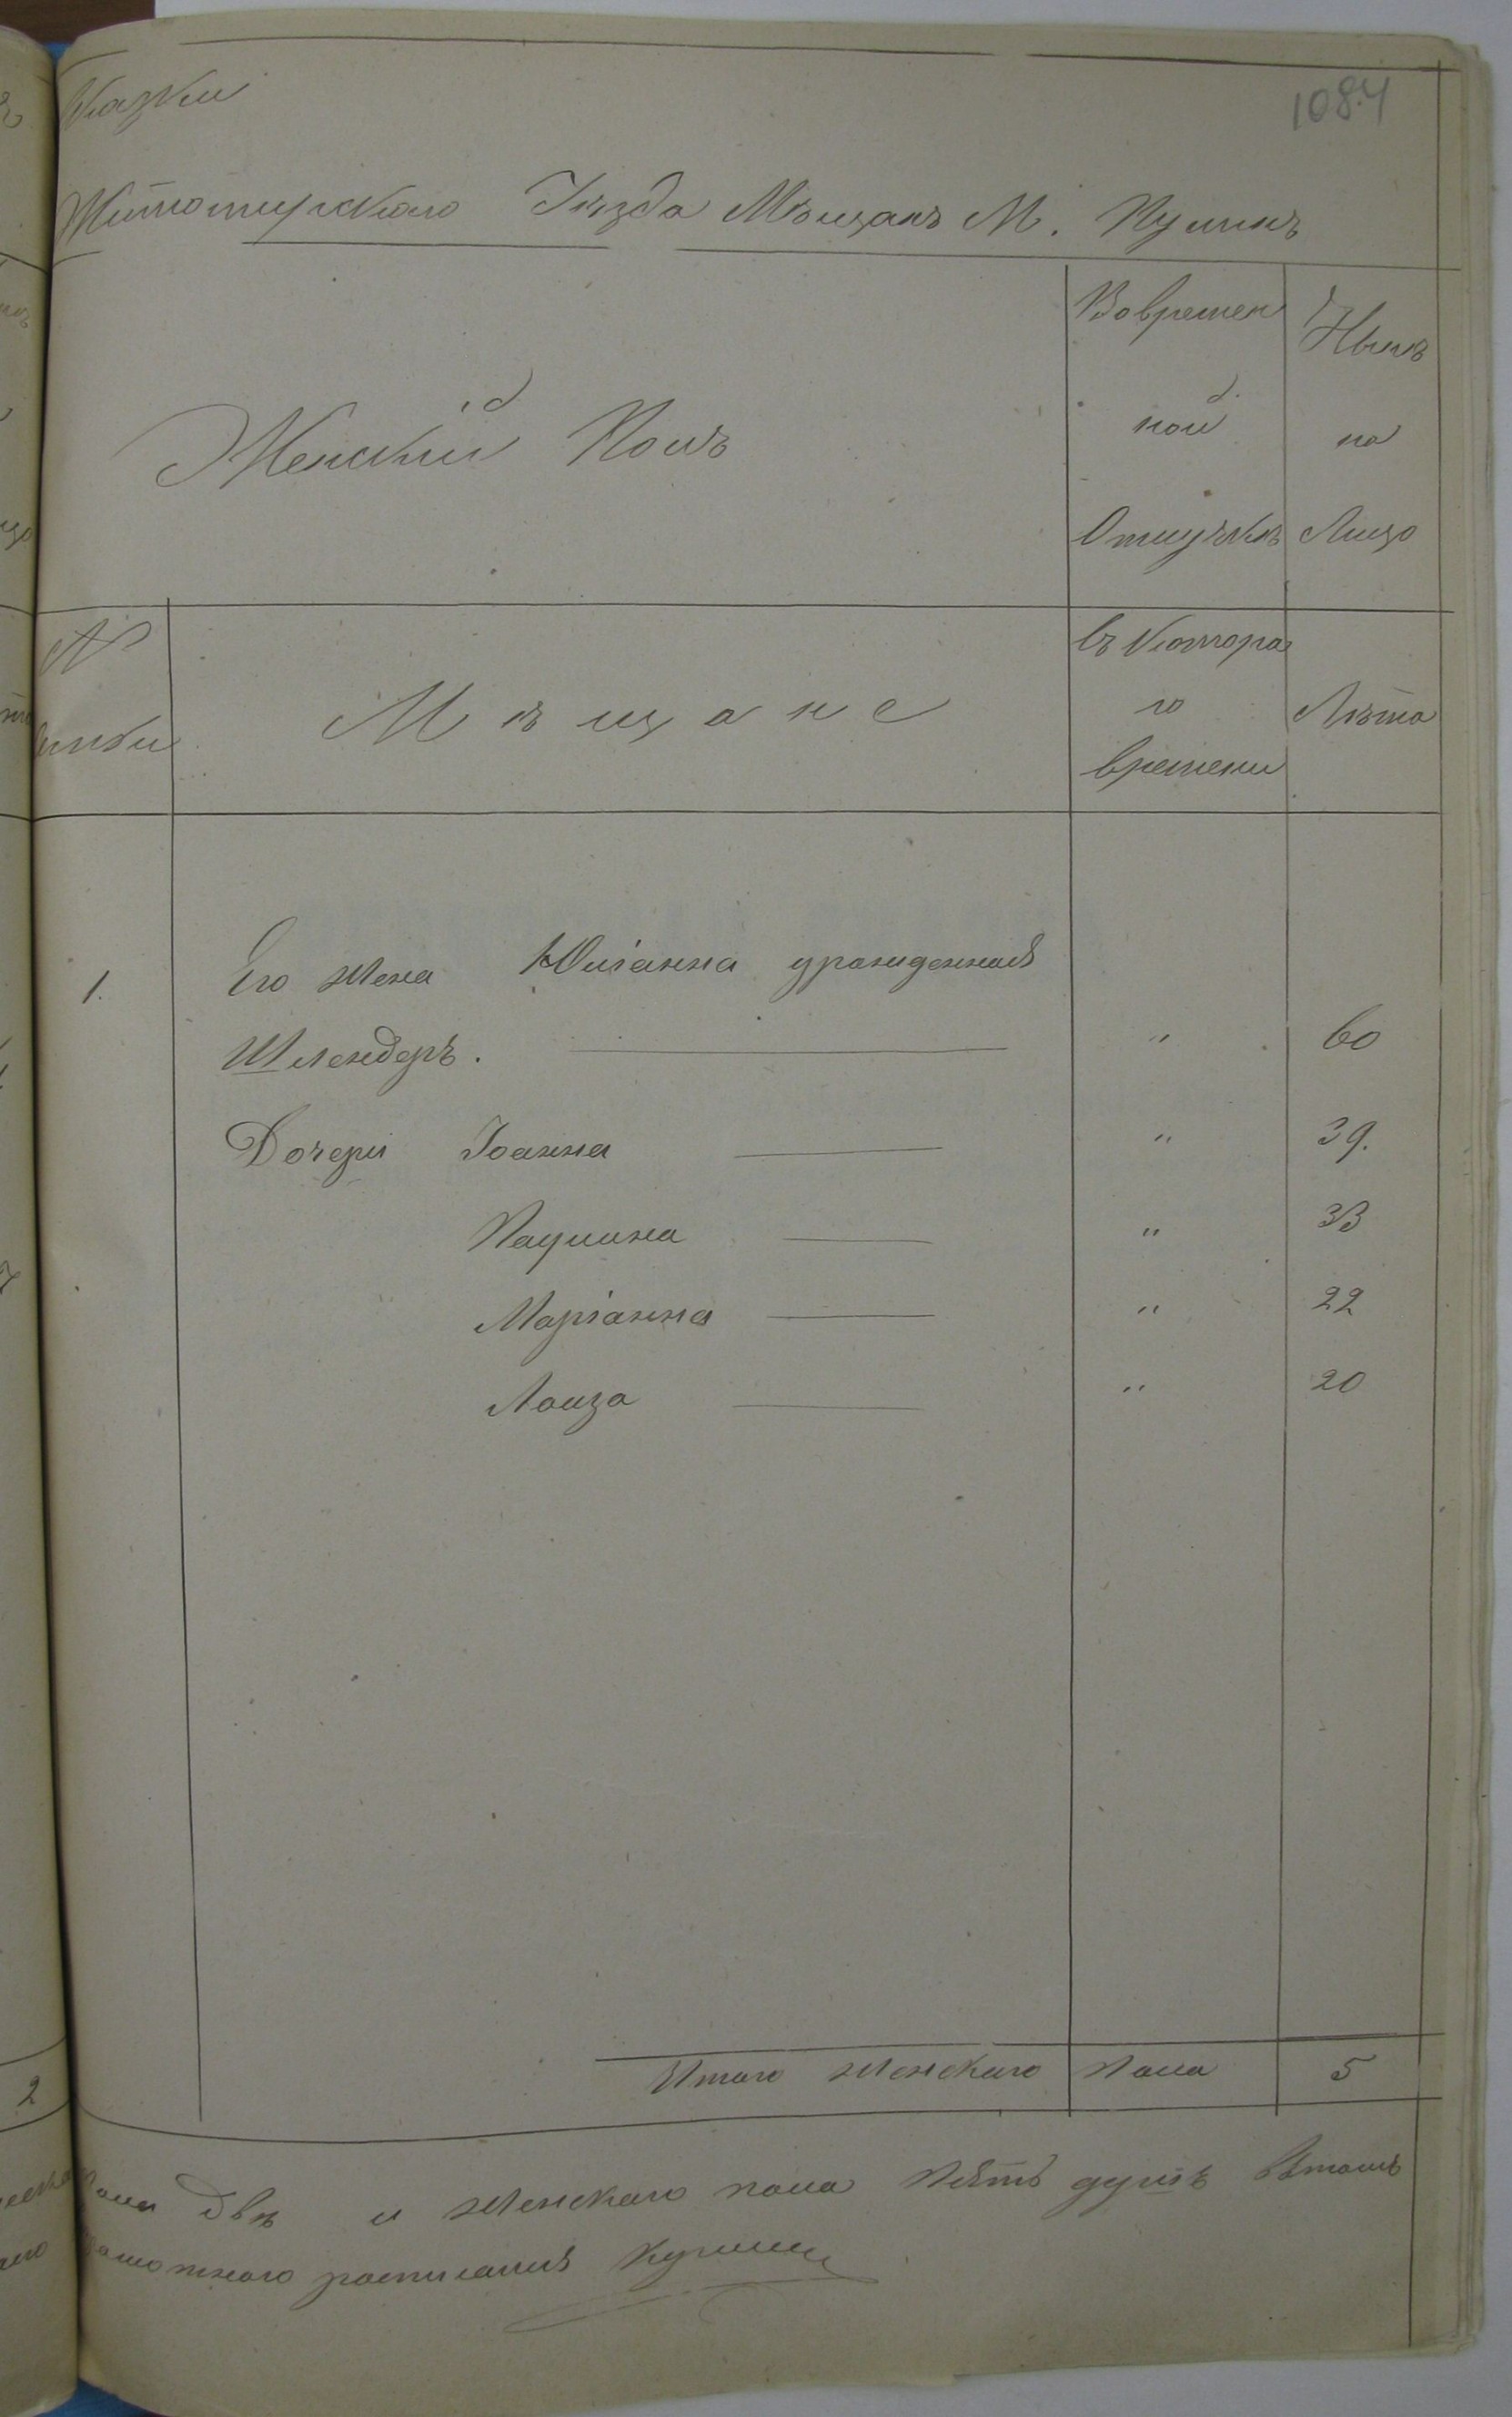 1084
Житомирскаго Уѣзда Мѣщанъ М. Пулинъ
Женскій Полъ
Во времен
ной
Отлучкѣ
Нынѣ
на
Лицо
№
Мѣщане
въ котора
го
времени
Лѣта
1. Его жена Юліанна урожденная
Шлендеръ. " 60
Дочери Іоанна " 39.
Паулина " 33
Маріанна " 22
Лоиза " 20
Итого женскаго пола 5
2
пола двѣ и женскаго пола пять душъ въ томъ
росписался